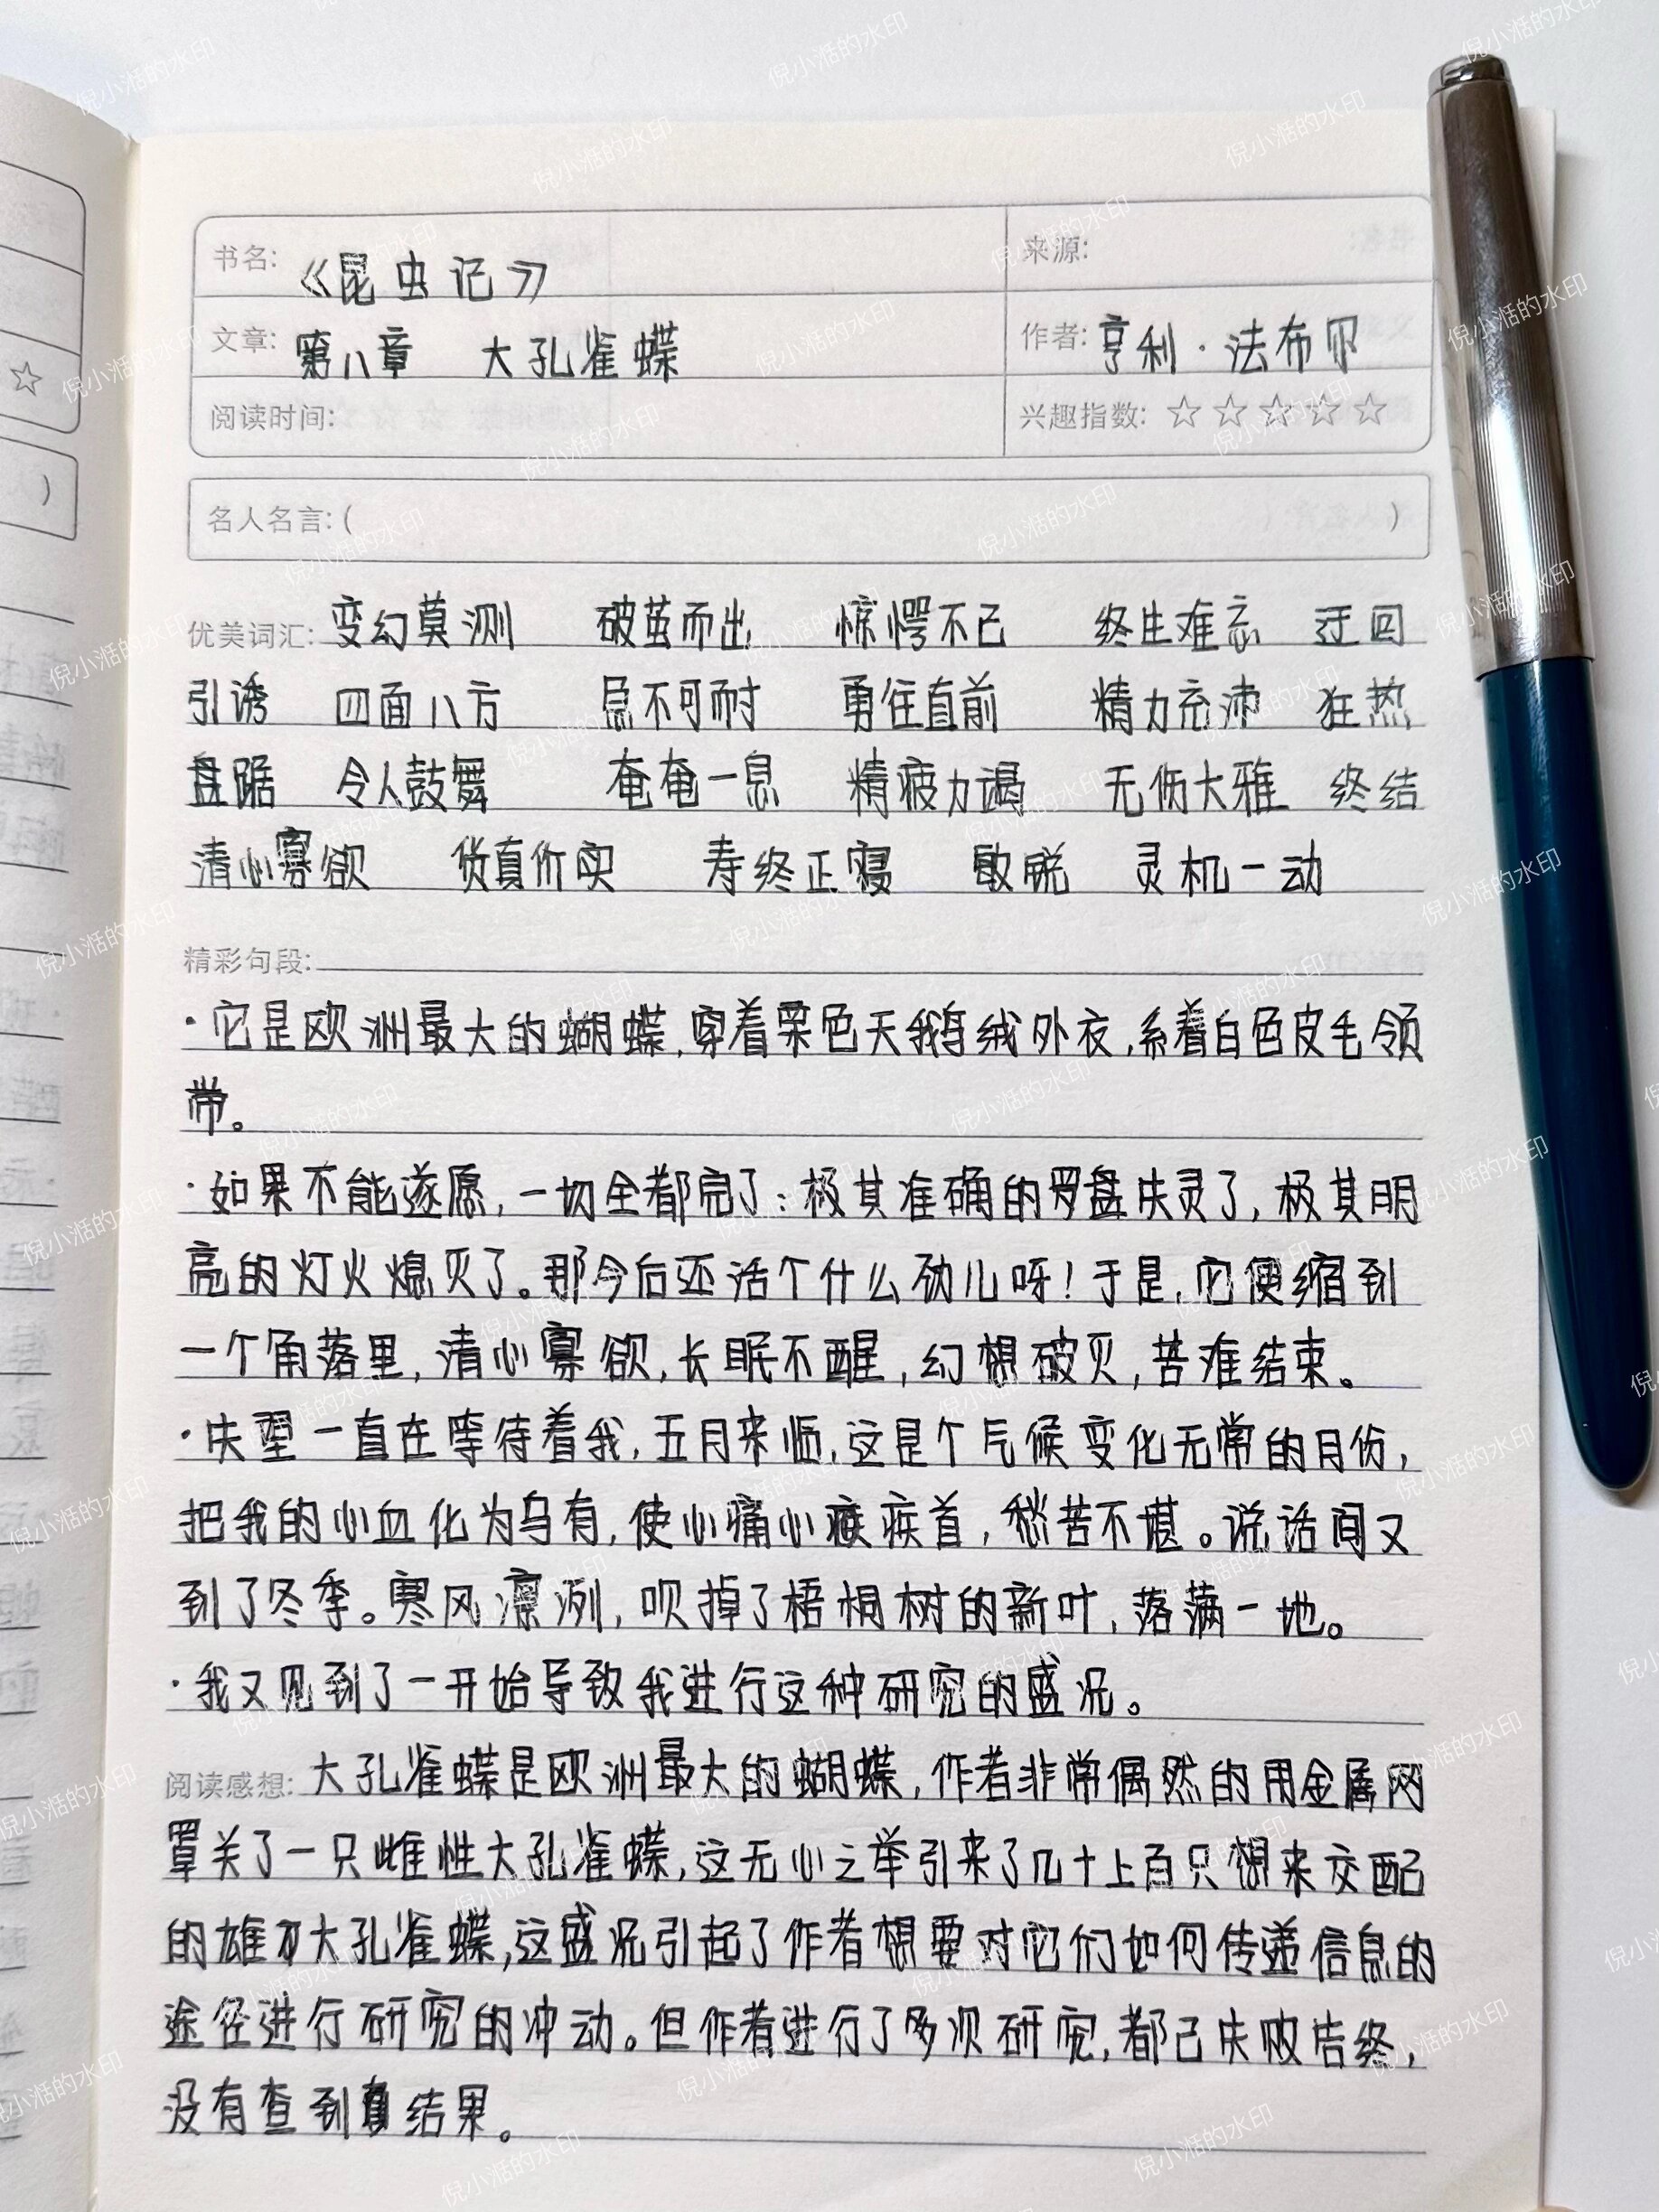 书名: 《昆虫记》 来源:
文章: 第八章 大孔雀蝶 作者: 亨利·法布尔
阅读时间: 兴趣指数: ☆☆☆☆☆
名人名言: ( )
优美词汇: 变幻莫测 破茧而出 惊愕不已 终生难忘 迂回
引诱 四面八方 急不可耐 勇往直前 精力充沛 狂热
盘踞 令人鼓舞 奄奄一息 精疲力竭 无伤大雅 终结
清心寡欲 货真价实 寿终正寝 敏锐 灵机一动
精彩句段:
·它是欧洲最大的蝴蝶,穿着栗色天鹅绒外衣,系着白色皮毛领
带。
·如果不能遂愿,一切全都完了:极其准确的罗盘失灵了,极其明
亮的灯火熄灭了。那今后还活个什么劲儿呀!于是,它便缩到
一个角落里,清心寡欲,长眠不醒,幻想破灭,苦难结束。
·失望一直在等待着我,五月来临,这是个气候变化无常的月份,
把我的心血化为乌有,使心痛心疾首,愁苦不堪。说话间又
到了冬季。寒风凛冽,吹掉了梧桐树的新叶,落满一地。
·我又见到了一开始导致我进行这种研究的盛况。
阅读感想: 大孔雀蝶是欧洲最大的蝴蝶,作者非常偶然的用金属网
罩关了一只雌性大孔雀蝶,这无心之举引来了几十上百只想来交配
的雄大孔雀蝶,这盛况引起了作者想要对它们如何传递信息的
途径进行研究的冲动。但作者进行了多次研究,都已失败告终,
没有查到结果。
倪小湉的水印